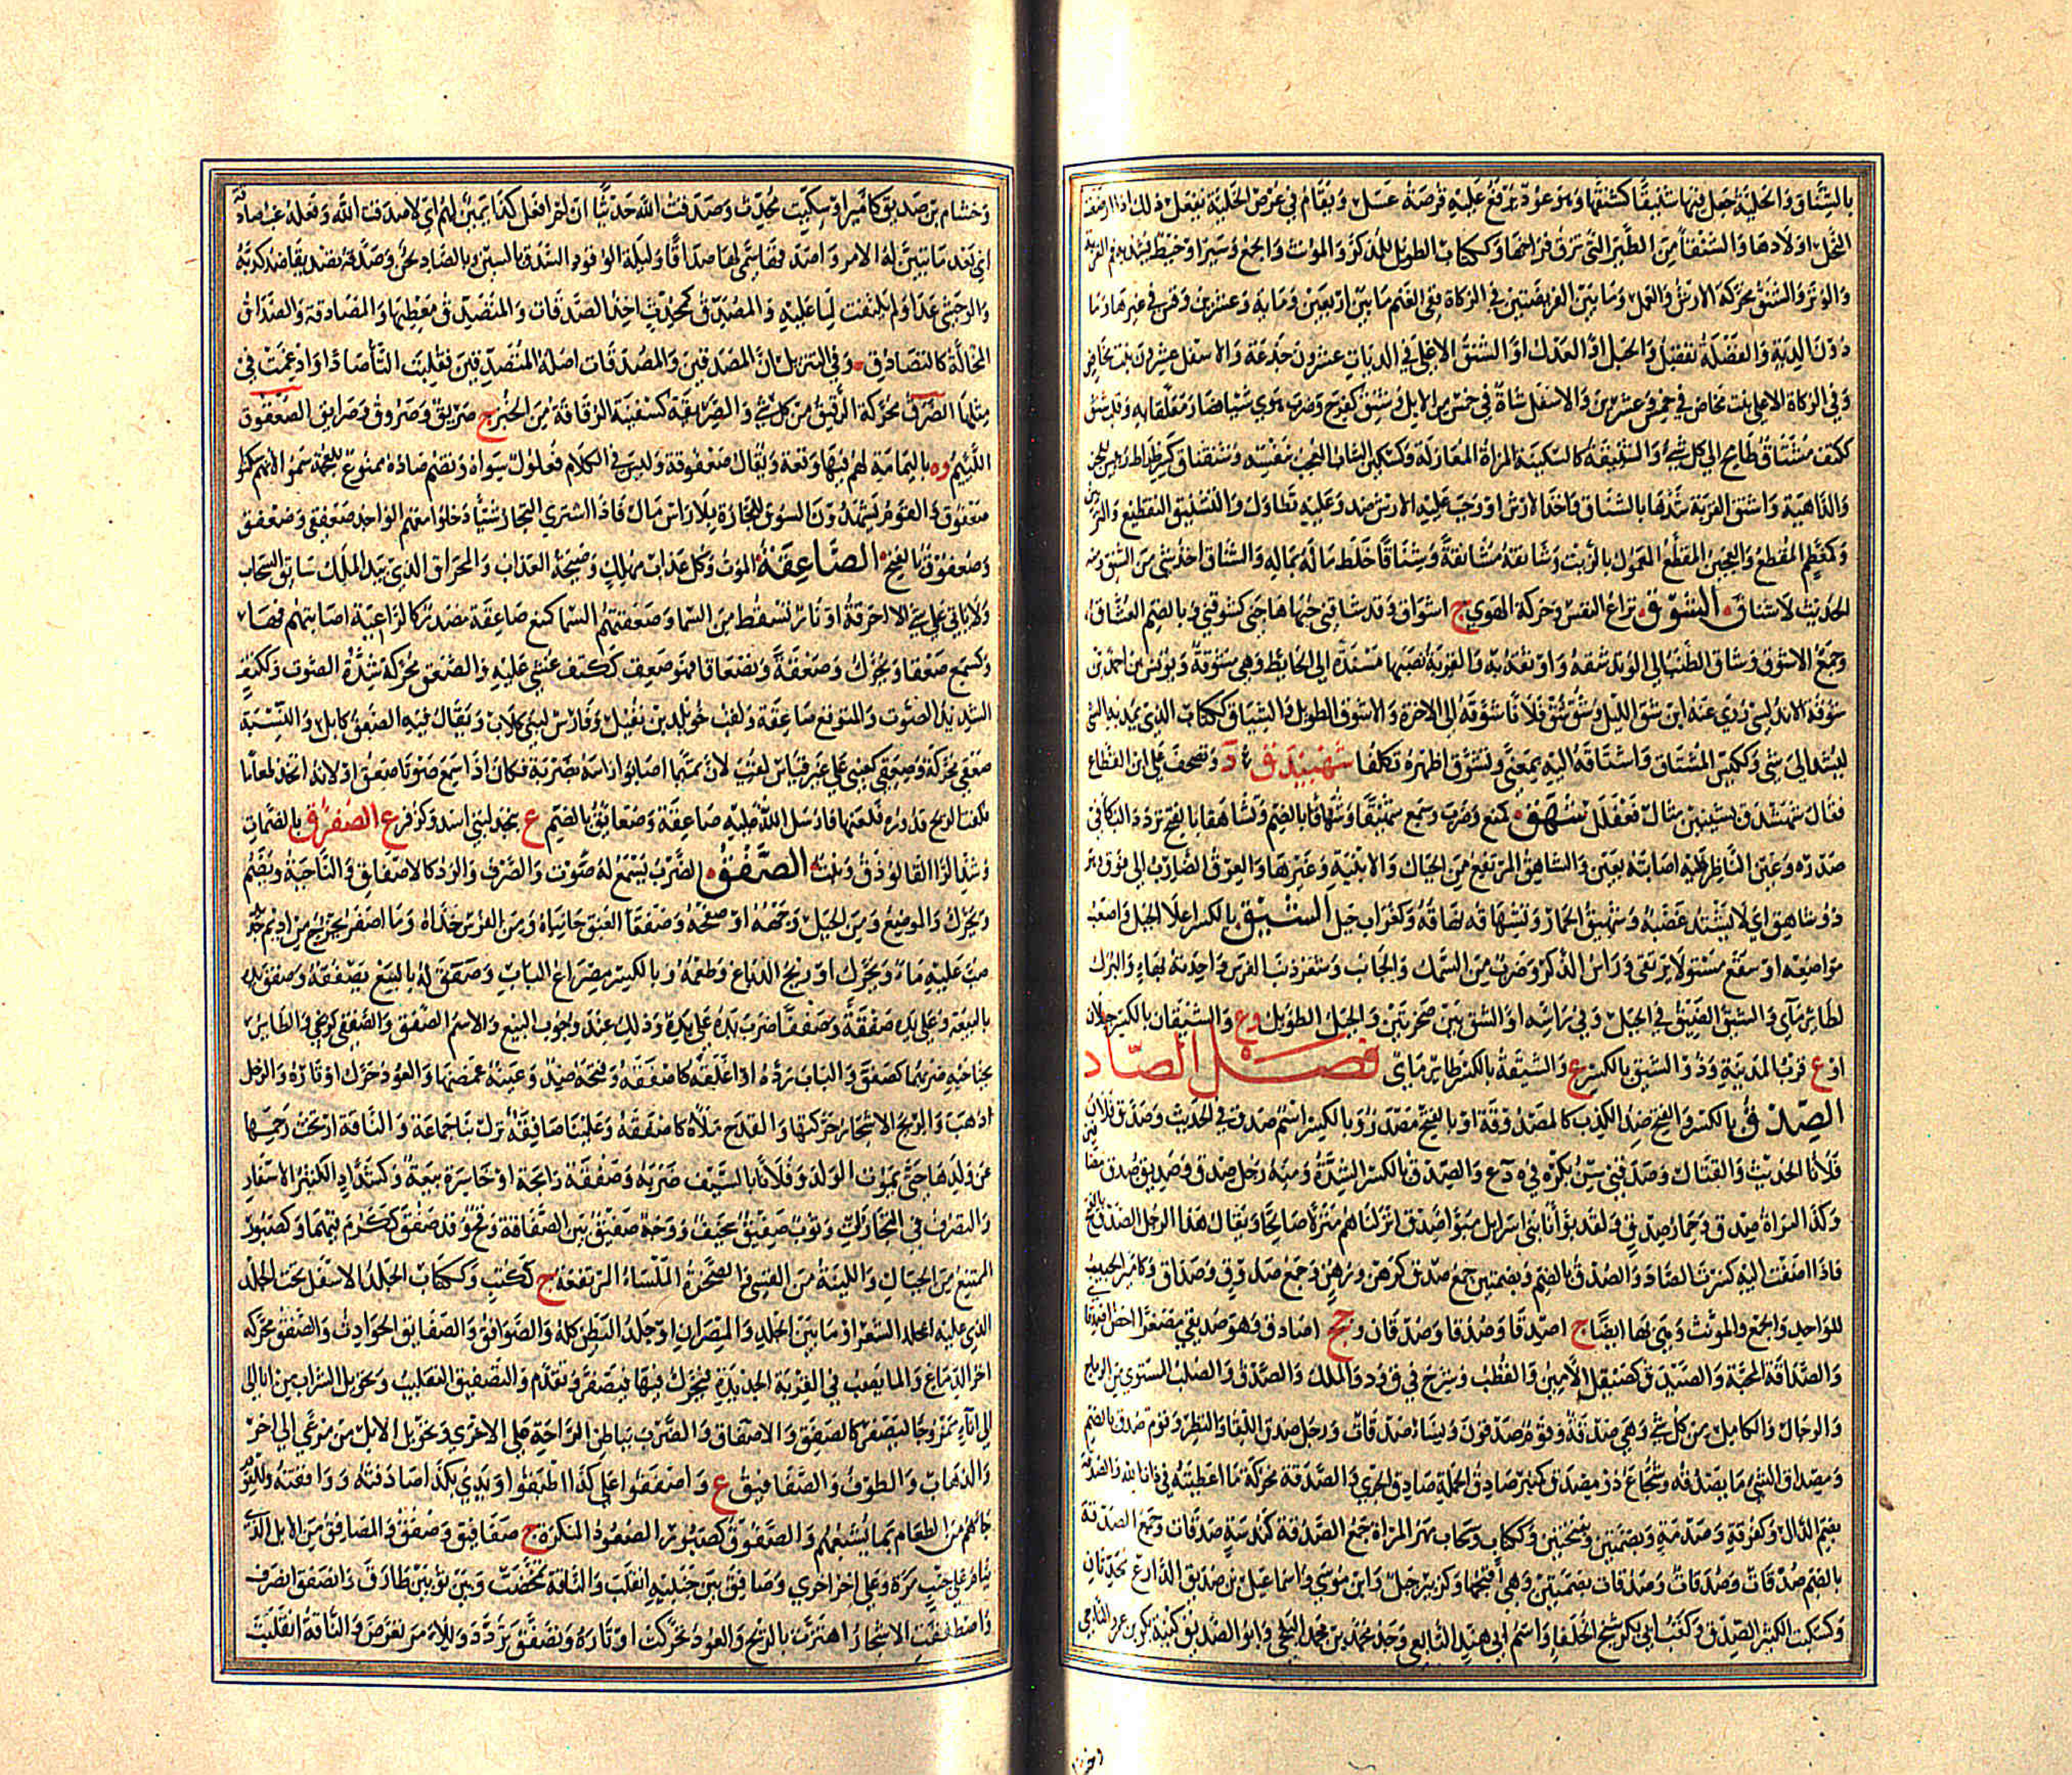 بالشناق والخلية جعل فيها شنيقا كشنقها وهو عود يرفع عليه قرصة عسل ويقام في عرض الخلية يفعل ذلك اذا ارضعت
النحل اولادها والشنقاء من الطير التي تزق فراخها وككتاب الطويل للمذكر والمونث والجمع وسير او خيط يشد به فم القربة
والوتر والشنق محركة الارش والعمل وما بين الفريضتين في الزكاة ففي الغنم ما بين اربعين ومايه وعشرين وقس في غيرها وما
دون الدية والفضلة تفضل والحبل او العدل او الشنق الاعلى في الديات عشرون جذعة والاسفل عشرون بنت مخاض
وفي الزكاة الاعلى بنت مخاض في خمس وعشرين والاسفل شاة في خمس من الابل وشنق كفرح وضرب هوي شيافصار متعلقا به وقلب شنق
ككتف مشتاق طامح الي كل شي والشنيقة كالسكينة المراة المغازلة وكسكين الشاب المعجب بنفسه وشنقناق كسرطراط رئيس للجن
والداهية واشنق القربة شدها بالشناق واخذ الارش او وجب عليه الارش ضد وعليه تطاول والتشنيق التقطيع والتزيين
وكمعظم المقطع والعجين المقطع المعمول بالزيت وشانقه مشانقة وشناقا خلط ماله بماله والشناق اخذ شي من الشنق ومنه
الحديث لا شناق الشوق نزاع النفس وحركة الهوي ج اشواق وقد شاقني حبها هاجني كشوقني و بالضم العشاق
وجمع الاشوق وشاق الطنب الي الوتد شده واوثقه به والقربة نصبها مسندة الي الحايط وهي مشوقة ويونس بن احمد بن
شوقة الاندلسي روي عنه ابن شق الليل وشق شق فلانا شوقه الي الاخرة والاشوق الطويل والشياق ككتاب الذي يمد به الشي
ليشد الي شي وككيس المشتاق واشتاقه اليه بمعني وتشوق اظهره تكلفا شهبيذق ع د وتصحف علي ابن القطاع
فقال شهشذق بشينين مثال فعفلل شهق كمنع وضرب وسمع شهيقا وشهاقا بالضم وتشاهقا بالفتح تردد البكا في
صدره وعين الناظر عليه اصابته بعين والشاهق المرتفع من الجبال والابنية وغيرها والعرق الضارب الي فوق وهو
ذو شاهق اي لا يشتد غضبه وشهيق الحمار وتشهاقه نهاقه وكغراب جبل الشيق بالكسر اعلا الجبل واصعب
مواضعه او سقع مستو لا يرتقى وراس الذكر وضرب من السمك والجانب وشعر ذنب الفرس واحدته بهاء والبرك
لطاير ماي والشق الضيق في الجبل وفي راسه او الشق بين صخرتين والجبل الطويل وع والشيقان بالكسر جبلان
او ع قرب المدينة وذو الشيق بالكسر ع والشيقة بالكسر طاير ماي فصل الصاد
الصدق بالكسر والفتح ضد الكذب كالمصدوقة او بالفتح مصدر وبالكسر اسم صدق في الحديث وصدق فلان
فلانا الحديث والقتال وصدقني سن بكره في ه د ع والصدق بالكسر الشدة ومنه رجل صدق وصديق صدق مضافا
وكذا امراة صدق وحمار صدق ولقد بوأنا بني اسرايل مبوأ صدق انزلناهم منزلا صالحا ويقال هذا الرجل الصدق بالفتح
فاذا اضفت اليه كسرت الصاد والصدق بالضم وبضمتين جمع صدق كرهن ورهن وجمع صدوق وصداق وكامير الحبيب
للواحد والجمع والمونث وهي بها ايضا ج اصدقا وصدقا وصدقان و جج اصادق وهو صديقي مصغرا اخص اصدقايي
والصداقة المحبة والصيدق كصيقل الامين والقطب وشرح في ق و د والملك والصدق والصلب المستوي من الرماح
والرجال والكامل من كل شي وهي صدقة وقوم صدقون ونساء صدقات ورجل صدق اللقاء والنظر وقوم صدق بالضم
ومصداق الشي ما يصدقه وشجاع ذو مصدق كمنبر صادق الحملة صادق الجري والصدقة محركة ما اعطيته في ذات الله والصدقة
بضم الدال وكغرفة وصدمة وبضمتين وبفتحتين وككتاب وسحاب مهر المراة جمع الصدقة كندسة صدقات وجمع الصدقة
بالضم صدقات وصدقات وصدقات بضمتين وهي اقبحها وكزبير جبل وابن موسي واسماعيل بن صديق الذارع محدثان
وكسكيت الكثير الصدق ولقب ابي بكر شيخ الخلفا واسم ابي هند التابعي وجد محمد بن محمد البلخي وابو الصديق كنية بكر بن عمر الناجي
وخشام بن صديق كامير او سكيت محدث وصدقت الله حديثا ان لم افعل كذا يمين لهم اي لا صدقت الله وفعله غب صادقة
اي بعد ما تبين له الامر واصدقها سمي لها صداقا وليلة الوقود السدق بالسين وبالصاد لحن وصدقه تصديقا ضد كذبه
والوحشي عدا ولم يلتفت لما حمل عليه والمصدق كمحدث اخذ الصدقات والمتصدق معطيها والمصادقة والصداق
المخالة كالتصادق وفي التنزيل ان المصدقين والمصدقات اصله المتصدقين فقلبت التا صادا وادغمت في
مثلها الصرق محركة الرقيق من كل شي والصريقة كسفينة الرقاقة من الخبز ج صريق وصروق وصرايق الصعفوق
اللئيم وه باليمامة لهم فيها وقعة ويقال صعفوقة وليس في الكلام فعلول سواه وتضم صاده ممنوع للعجمة سموا لانهم سكنوا
صعفوق والقوم يشهدون السوق للتجارة بلا راس مال فاذا اشتري التجار شيا دخلوا معهم الواحد صعفقي وصعفق
وصعفوق بالفتح الصاعقة الموت وكل عذاب مهلك وصيحة العذاب والمخراق الذي بيد الملك سايق السحاب
ولا ياتي علي شي الا احرقه او نار تسقط من السما وصعقتهم السما كمنع صاعقة مصدر كالراعية اصابتهم بها
وكسمع صعقا ويحرك وصعقة وتصعاقا فهو صعق ككتف غشي عليه والصعق محركة شدة الصوت وككتف
الشديد الصوت والمتوقع صاعقة ولقب خويلد بن نفيل وفارس لبني كلاب ويقال فيه الصعق كابل والنسبة
صعقي محركة وصعقي كعنبي علي غير قياس لقب لان تميما اصابوا راسه بضربة فكان اذا سمع صوتا صعق او لانه اتخذ طعاما
فكفت الريح قدوره فلعنها فارسل الله عليه صاعقة وصعايق بالضم ع بنجد لبني اسد وكزفر ع الصفرق بالضمات
وشد الرا الفالوذق ونبت الصفق الضرب يسمع له صوت والصرف والرد كالاصفاق والناحية ويضم
ويحرك والموضع ومن الجبل وجهه او صفحه وصفقا العنق جانباه ومن الفرس خداه وما اصفر يخرج من اديم جديد
صب عليه ماء ويحرك او ريح الدباغ وطعمه وبالكسر مصراع الباب وصفق له بالبيع يصفقه وصفق يده
بالبيعة وعلي يده صفقة وصفقا ضرب يده علي يده وذلك عند وجوب البيع والاسم الصفق والصفقي كزمجي والطاير
بجناحيه ضربهما كصفق والباب رده اذا اغلقه كاصفقه وفتحه ضد وعينه غمضها والعود حرك اوتاره والرجل
ذهب والريح الاشجار حركتها والقدح ملأه كاصفقه وعلينا صافقة نزل بنا جماعة والناقة ارتجت رحمها
عن ولدها حتى يموت الولد وفلانا بالسيف ضربه وصفقة رابحة او خاسرة بيعة وكشداد الكثير الاسفار
والتصرف في التجارات وثوب صفيق سخيف ووجه صفيق بين الصفاقة وقح وقد صفق ككرم فيهما وكصبور
الممتنع من الجبال واللينة من القسي والصخرة الملساء المرتفعة ج ككتب وككتاب الجلد الاسفل تحت الجلد
الذي عليه الشعر او ما بين الجلد والمصران او جلد البطن كله والصوافق والصفايق الحوادث والصفق محركة
اخر الدماغ والماء يصب في القربة الجديدة فيحرك فيها فيصفر وتقدم والتصفيق التقليب وتحويل الشراب من انا الي
انا ممزوجا ليصفو كالصفق والاصفاق والضرب بباطن الراحة علي الاخري وتحويل الابل من مرعي الي اخر
والذهاب والطوف والصفافيق ع واصفقوا علي كذا اطبقوا ويدي بكذا صادفته ووافقته وللقوم
جاءهم من الطعام بما يشبعهم والصفوق كصبور الصعود المنكرة ج صفايق وصفق والمصافق من الابل الذي
ينام علي جنب مرة وعلي اخر اخري وصافق بين جنبيه انقلب والناقة مخضت وبين ثوبين طارق وانصفق انصرف
واصطفقت الاشجار اهتزت بالريح والعود تحركت اوتاره وتصفق تردد وللامر تعرض والناقة انقلبت